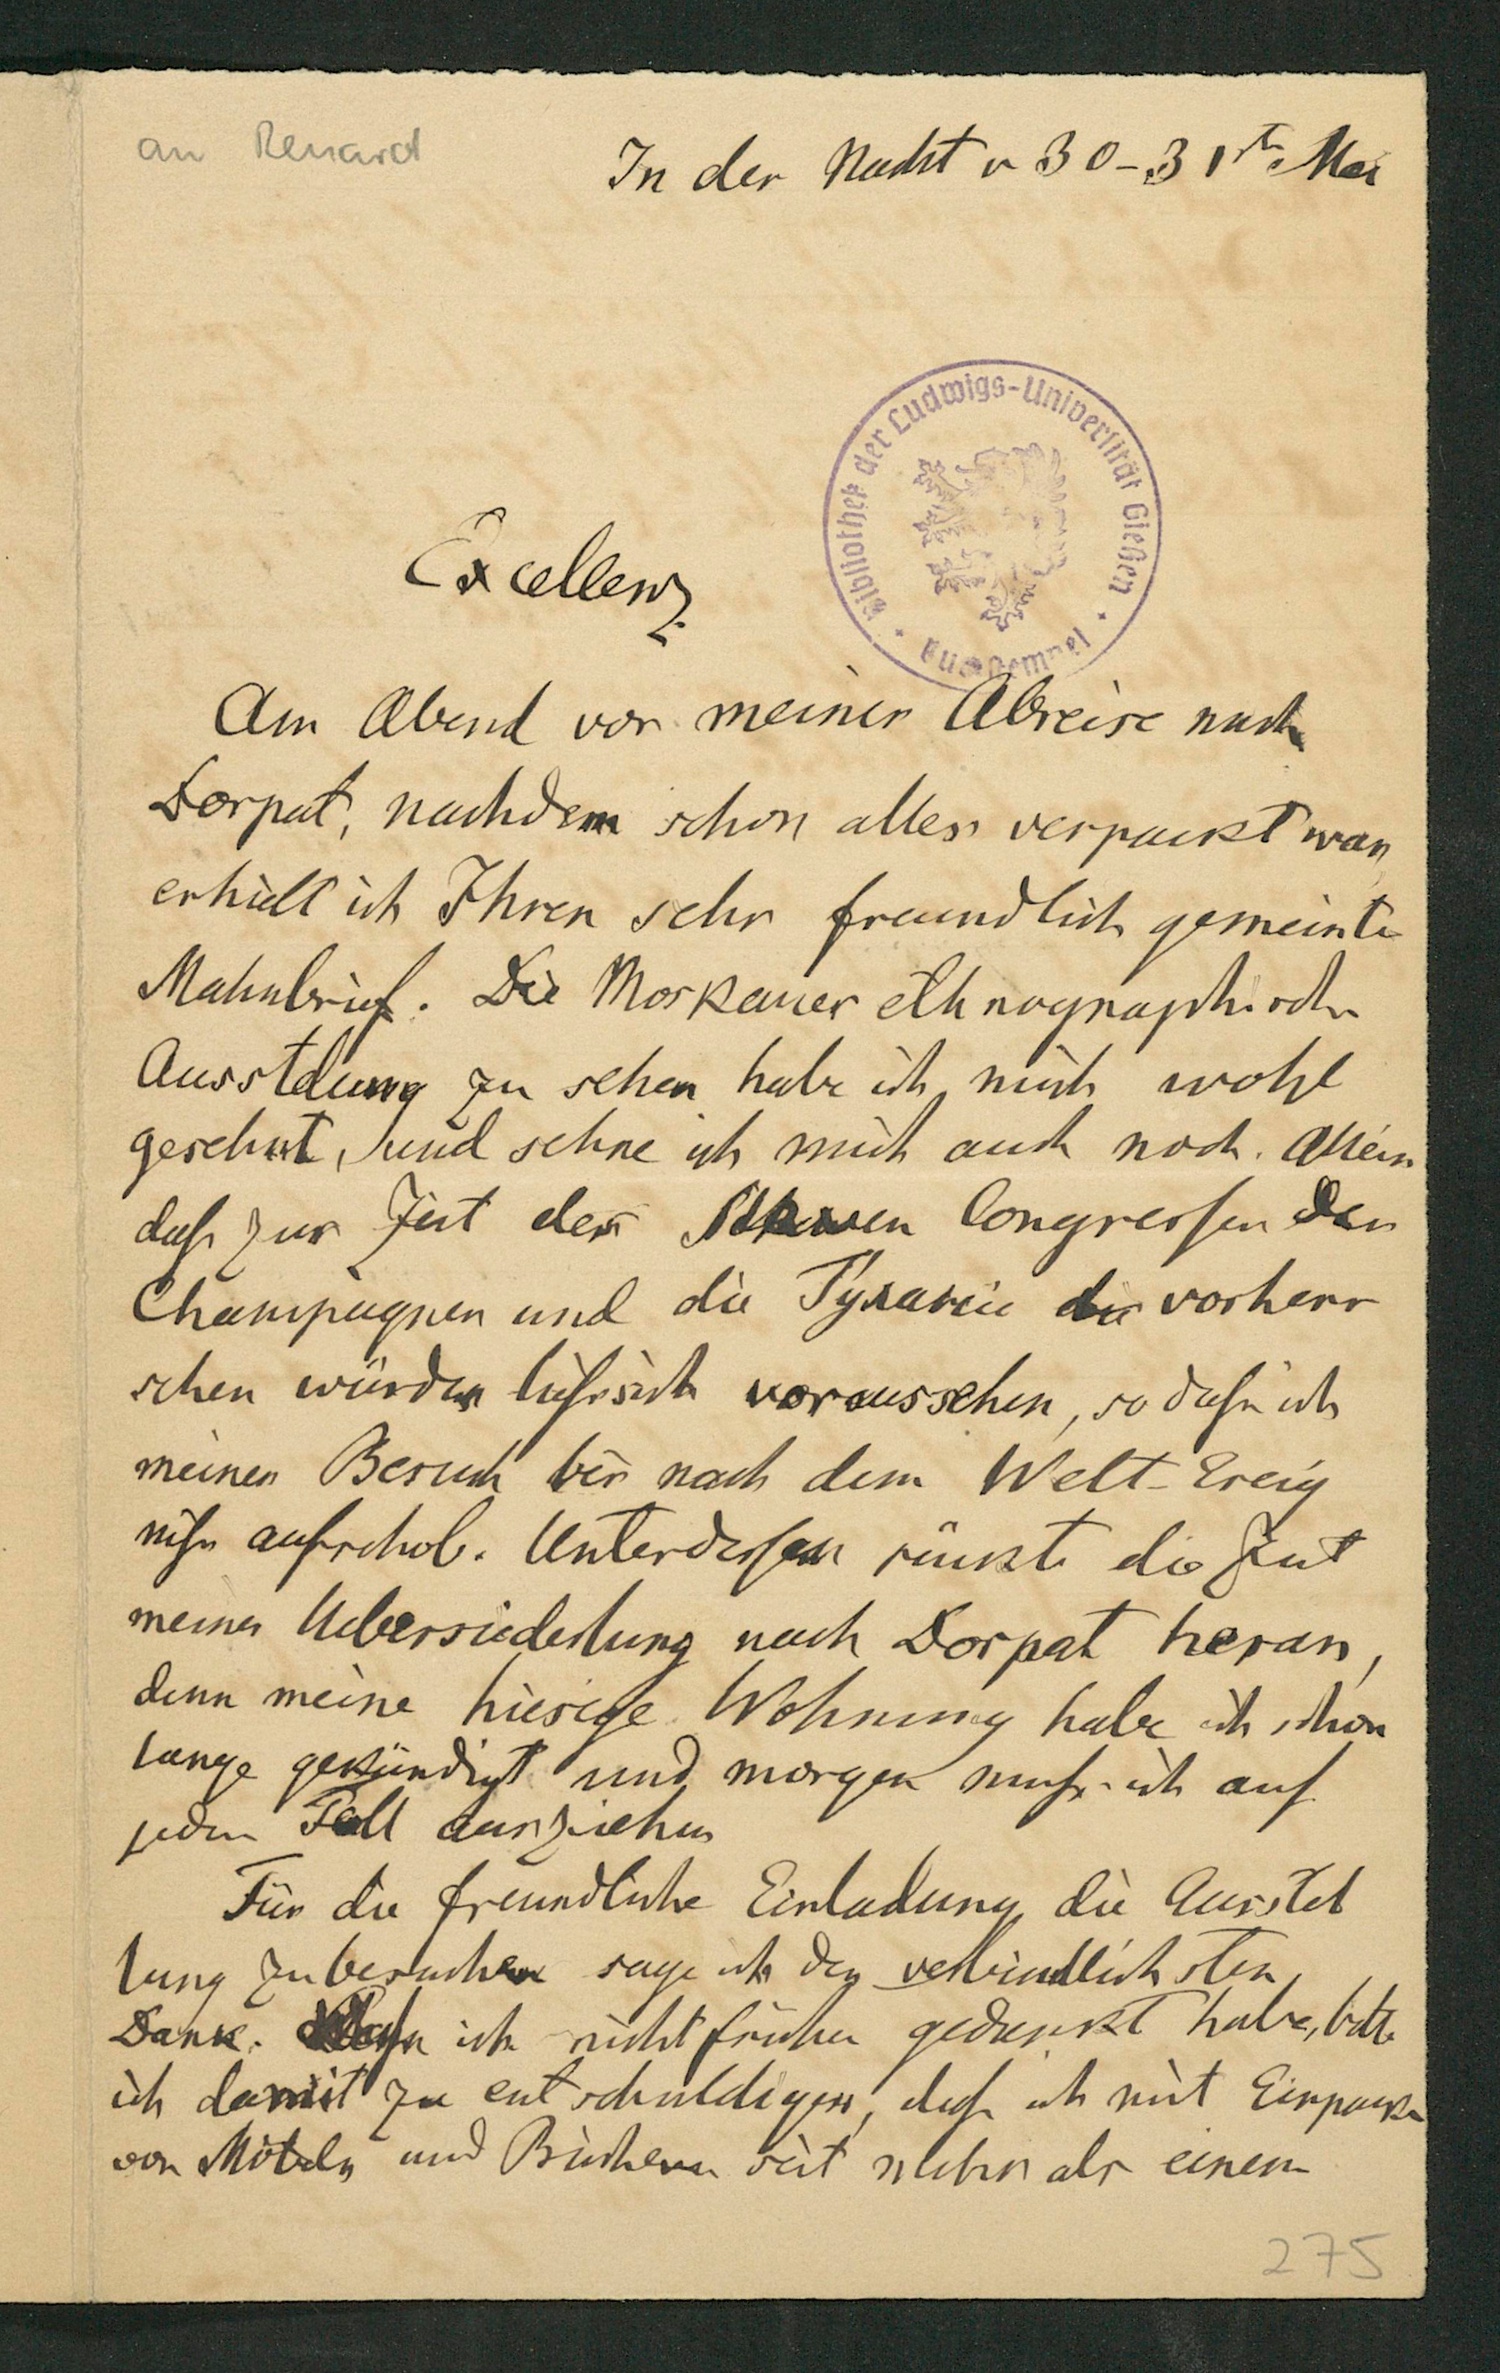 an Renard
In der Nacht v 30-31ten Mai
Bibliothek der Ludwigs-Universität Gießen
Excellenz
Am Abend vor meiner Abreise nach
Dorpat, nachdem schon alles verpackt war,
erhielt ich Ihren sehr freundlich gemeinten
Mahnbrief. Die Moskauer ethnographische
Ausstelung zu sehen habe ich mich wohl
gesehnt, und sehne ich mich auch noch. Allein
daß zur Zeit des Slawen Congresses der
Champagner und die vorherr
schen würden ließ sich voraussehen, so daß ich
meinen Besuch bis nach dem Welt-Ereig
niß aufschob. Unterdessen rückte die Zeit
meiner Uebersiedelung nach Dorpat heran,
denn meine hiesige Wohnung habe ich schon
lange gekündigt und morgen muß ich auf
jeden Fall ausziehen
Für die freundliche Einladung die Ausstel
lung zu besuchen sage ich den verbindlichsten
Dank. Daß ich nicht früher gedankt habe, bitte
ich damit zu entschuldigen, daß ich mit Einpacken
von Möbeln und Büchern seit mehr als einem
275